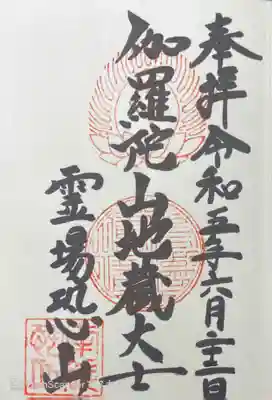 奉拝令和五年六月二十二日
伽羅陀山地蔵大士
霊場恐山